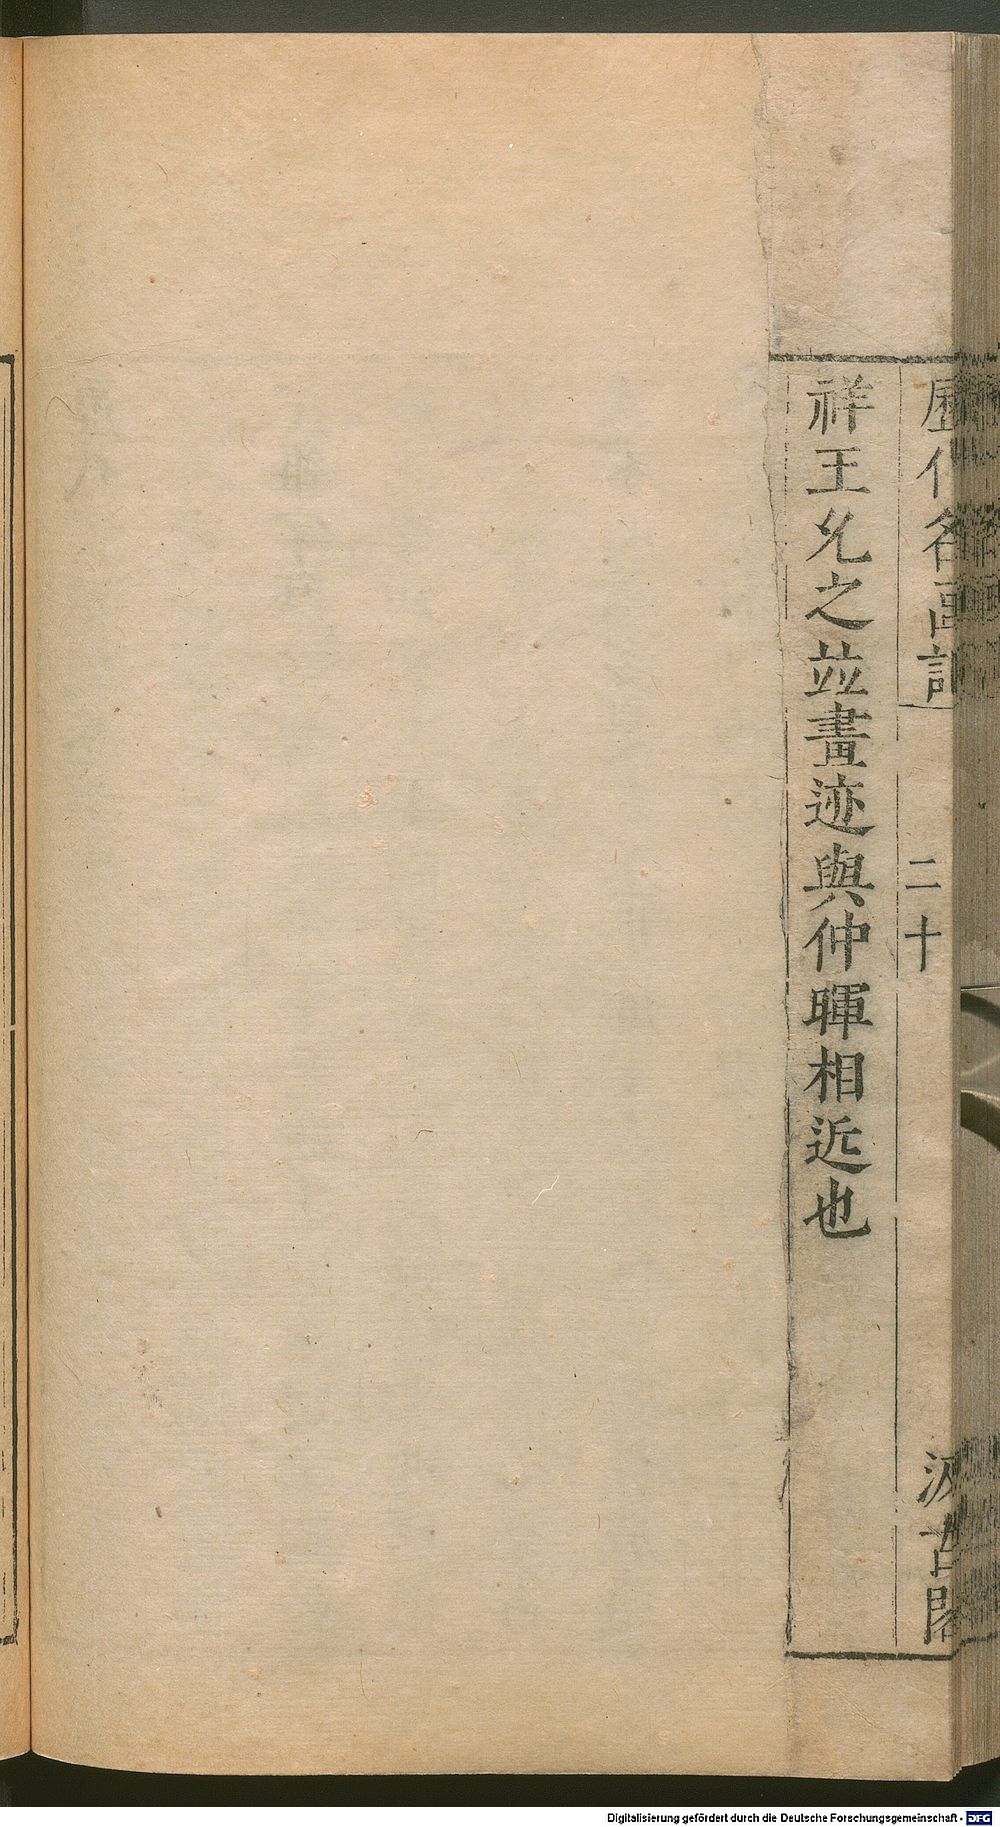 歷代名畫記 二十 汲古閣
祥王允之並畫迹與仲暉相近也
Digitalisierung gefördert durch die Deutsche Forschungsgemeinschaft - DFG